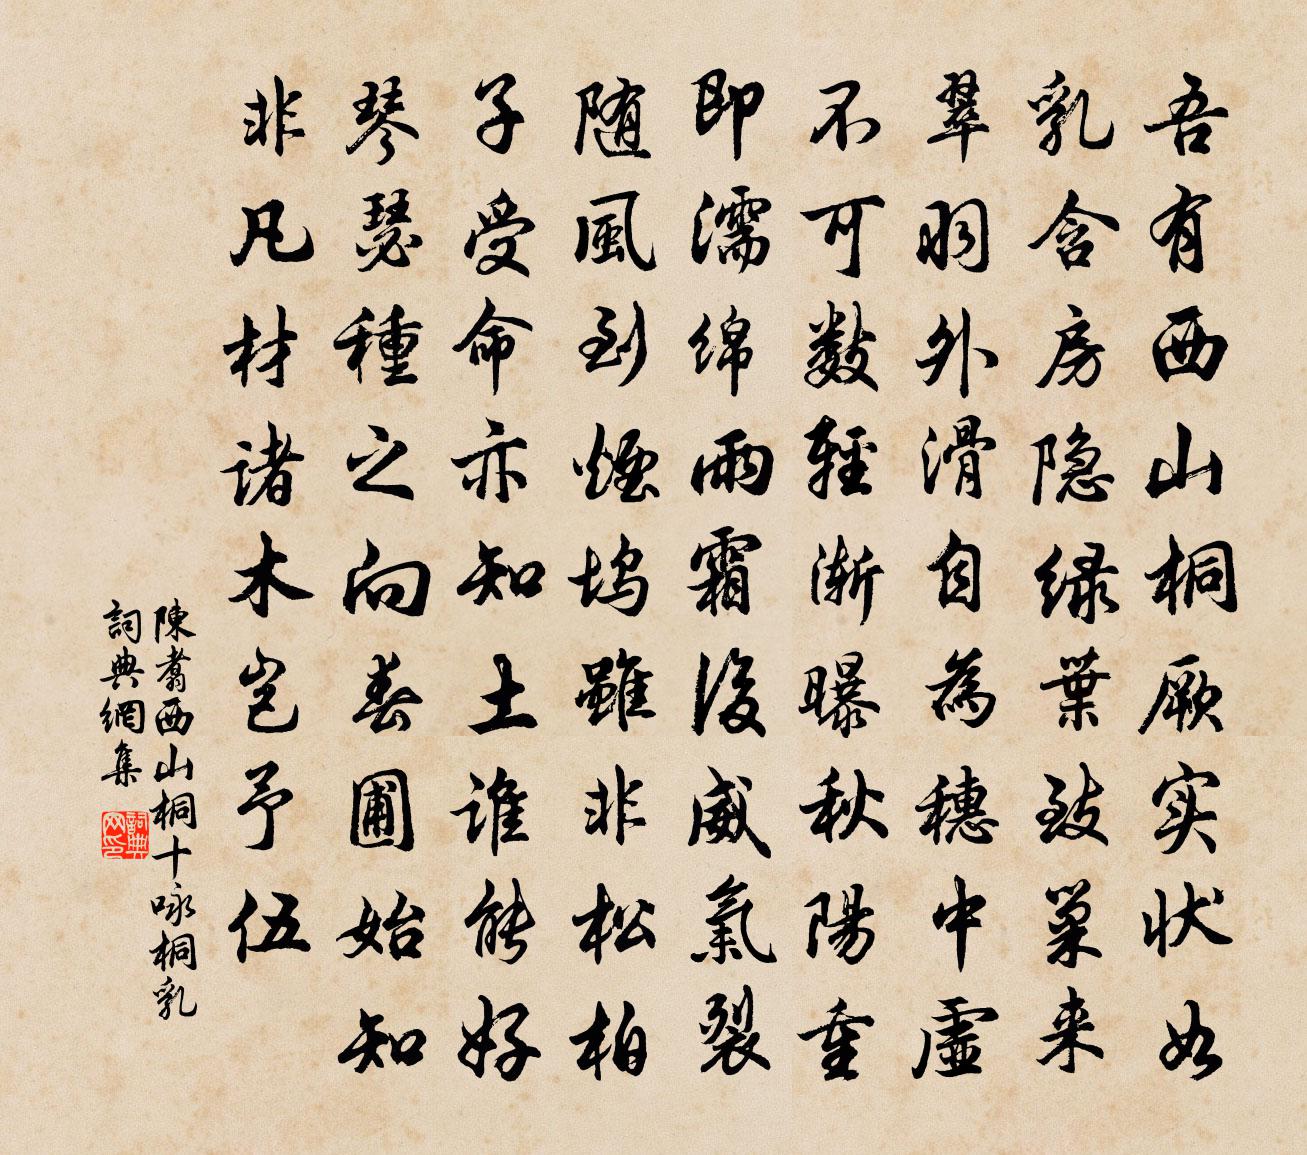 吾有西山桐厥实状如
乳含房隐绿葉致巢来
翠羽外滑自為穗中虚
不可數輕漸曝秋陽重
即濡綿雨霜後威氣裂
随風到煙塢雖非松柏
子受命亦知土誰能好
琴瑟種之向春圃始知
非凡材诸木岂予伍
陳翥西山桐十咏桐乳
詞典網集
詞典网印